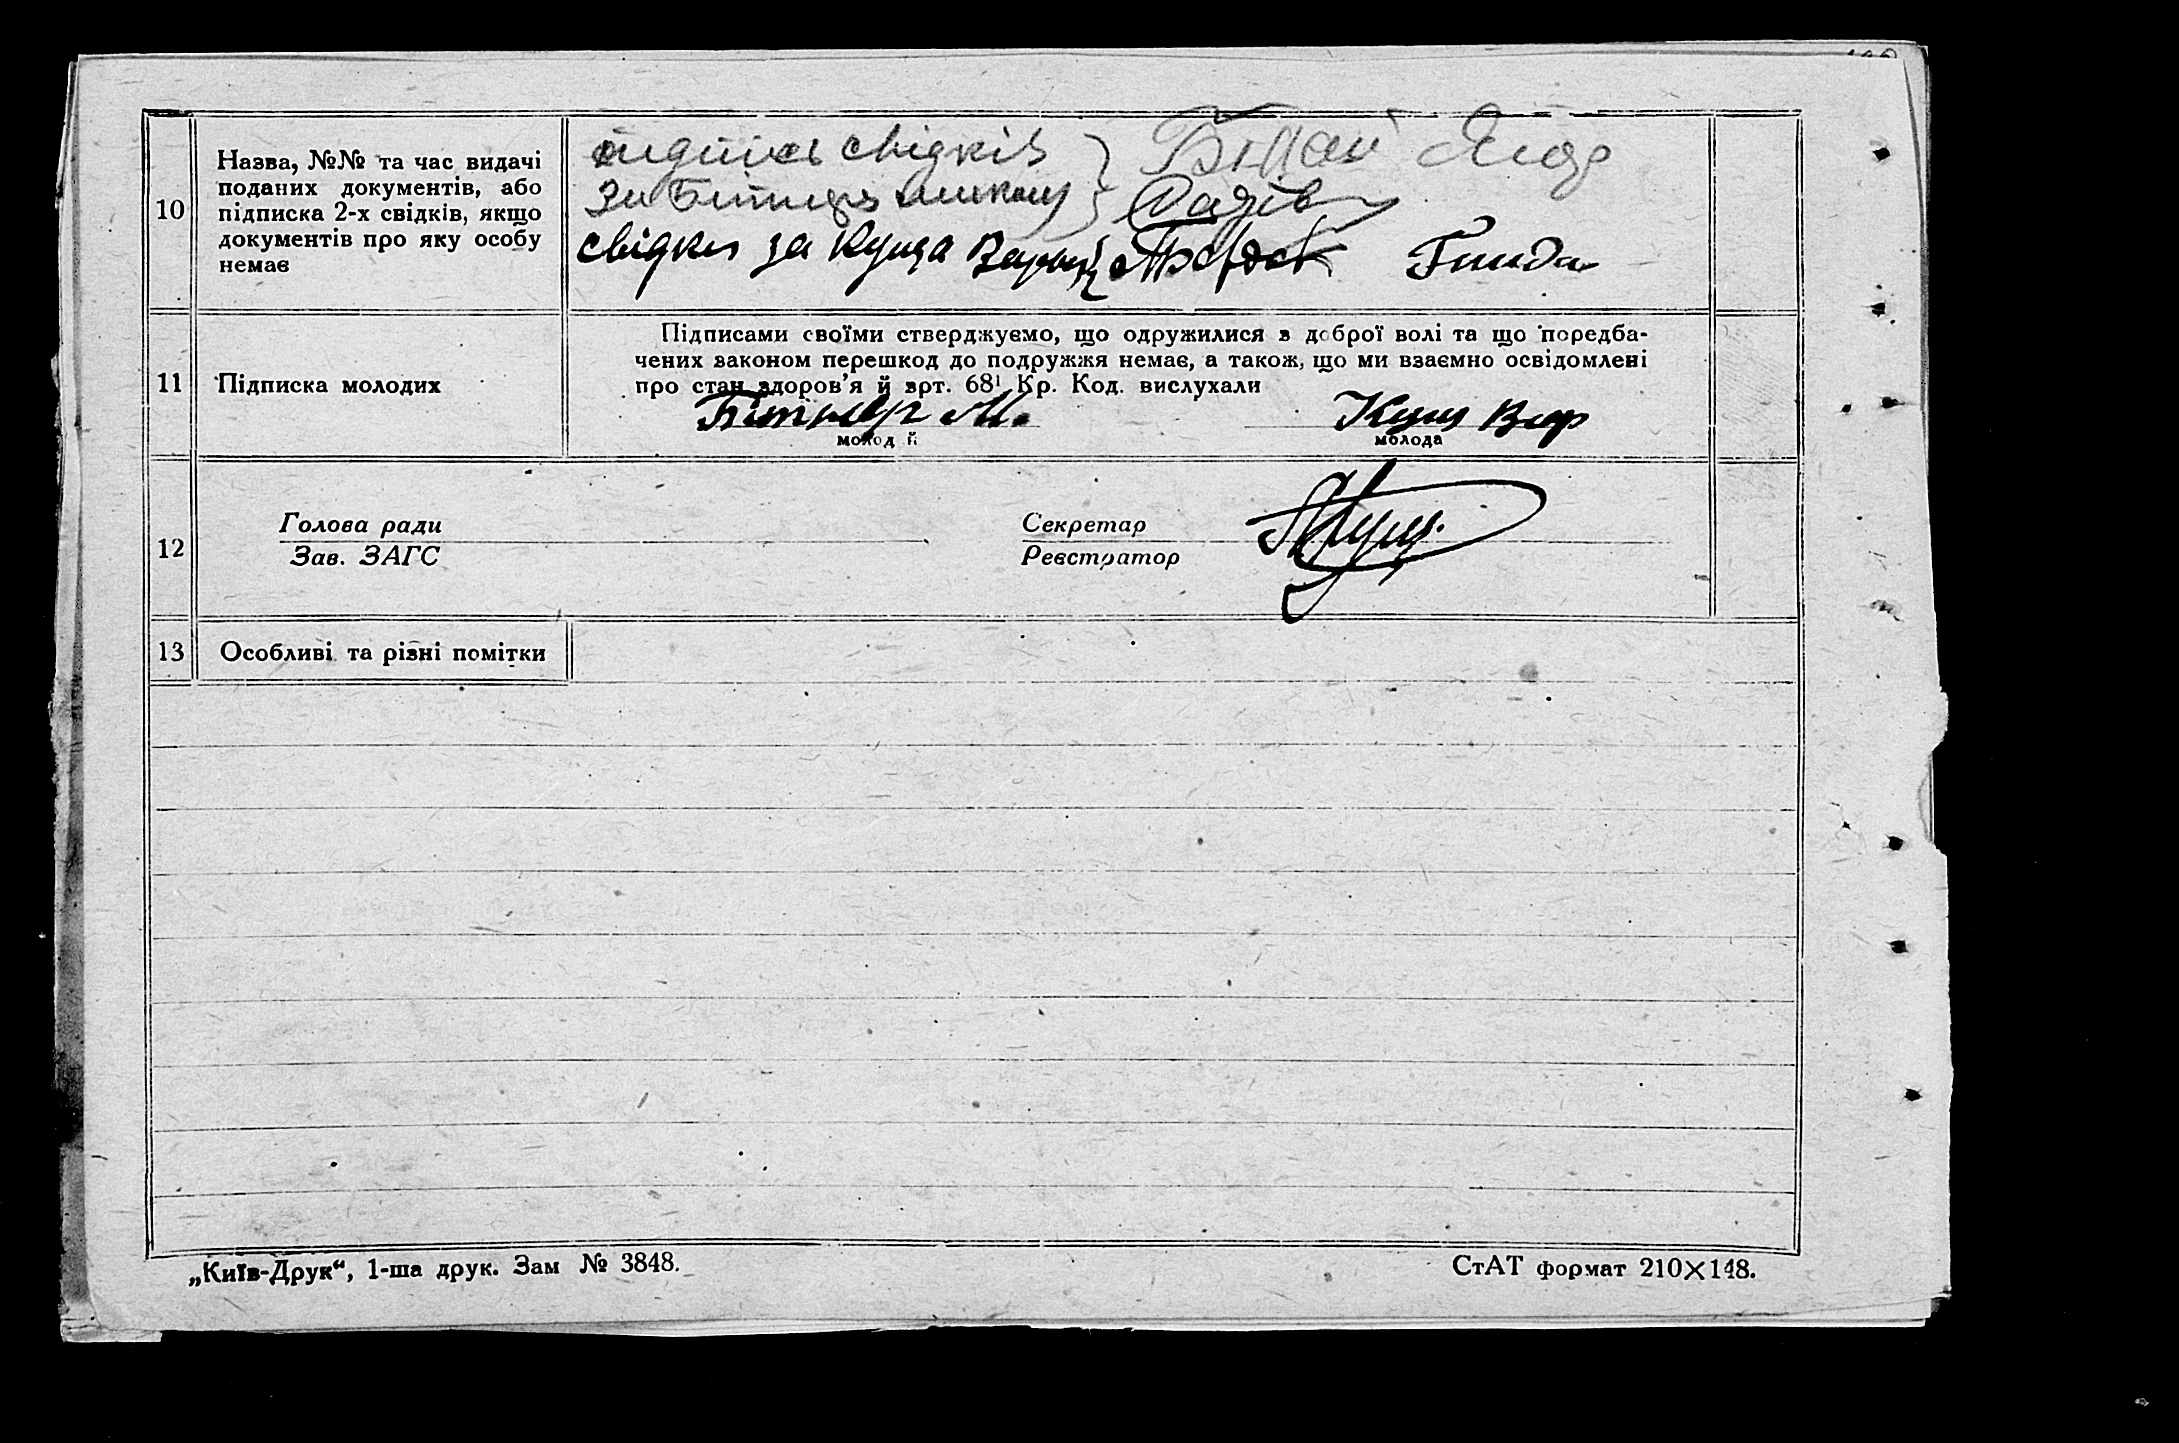 10
Назва, №№ та час видачі
поданих документів, або
підписка 2-х свідків, якщо
документів про яку особу
немає
підпись свідків
за
свідки за Куща
11
Підписка молодих
Підписами своїми стверджуємо, що одружилися з доброї волі та що передба-
чених законом перешкод до подружжя немає, а також, що ми взаємно освідомлені
про стан здоров'я й арт. 68¹ Кр. Код. вислухали
М.
Кущ Вар
молодий
молода
12
Голова ради
Зав. ЗАГС
Секретар
Реєстратор
13
Особливі та різні помітки
„Київ-Друк“, 1-ша друк. Зам № 3848.
СтАТ формат 210×148.